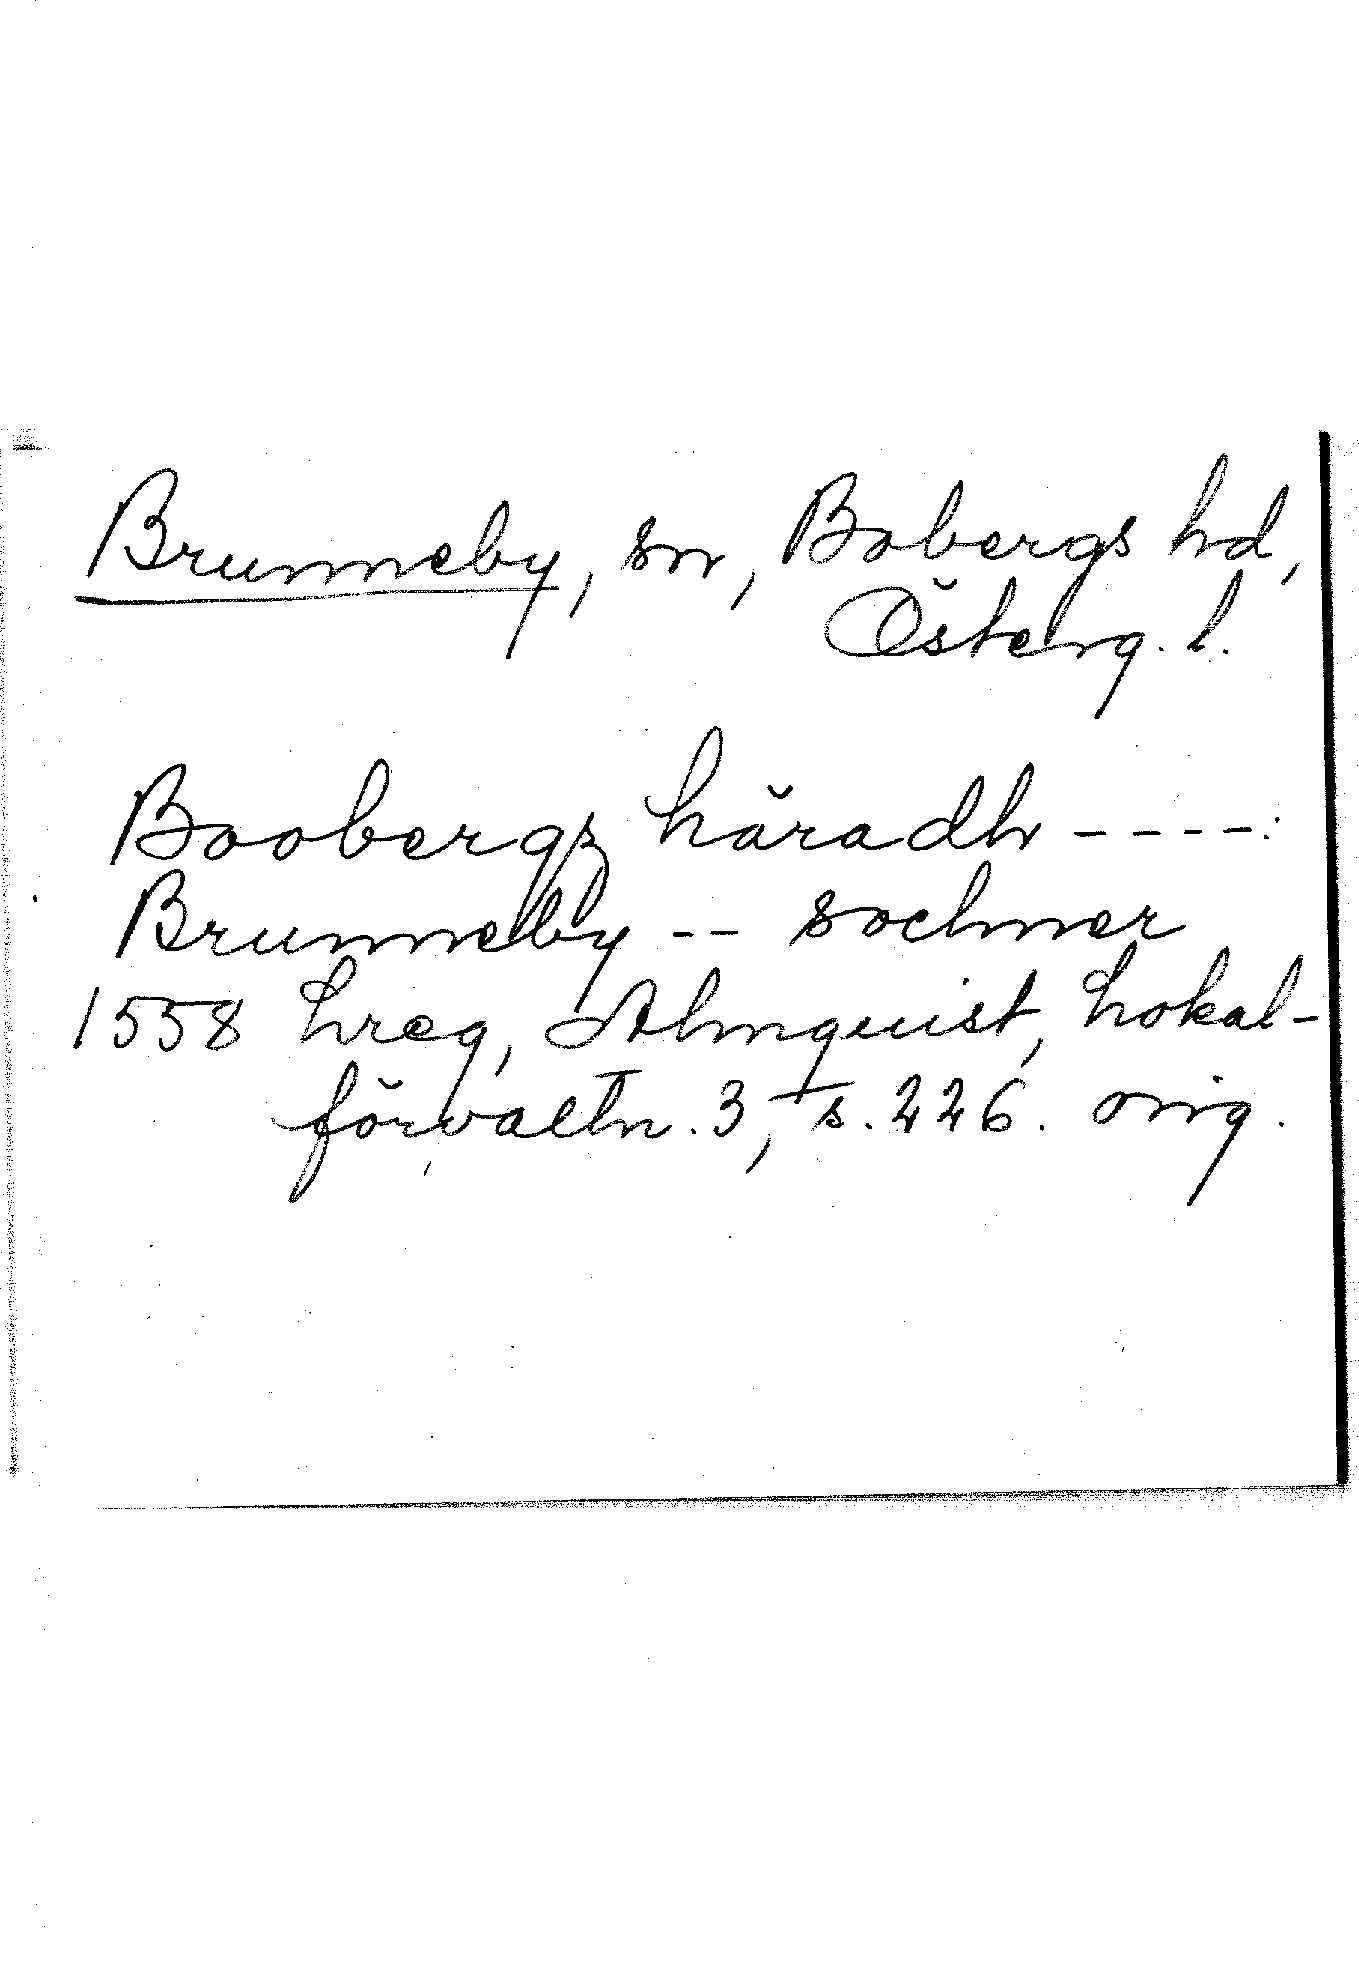 Brunneby, sn, Bobergs hd,
Österg. l.
Boobergz häradh ----:
Brunneby -- sochner
1558 hreg, Almquist, Lokal-
förvaltn. 3, s. 226. orig.